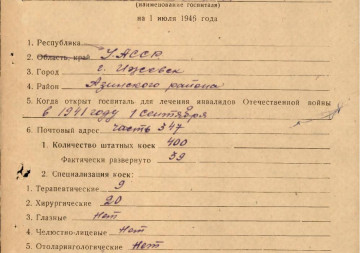 (наименование госпиталя)
на 1 июля 1945 года
1. Республика
2. Область, край УАССР
3. Город г. Ижевск
4. Район Азинского района
5. Когда открыт госпиталь для лечения инвалидов Отечественной войны
в 1941 году 1 сентября
6. Почтовый адрес часть 347
1. Количество штатных коек 400
Фактически развернуто 39
2. Специализация коек:
1. Терапевтические 9
2. Хирургические 20
3. Глазные нет
4. Челюстно-лицевые нет
5. Отоларингологические нет